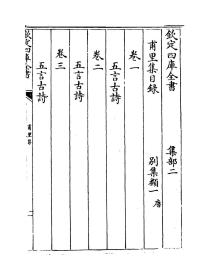 欽定四庫全書　集部二
甫里集目錄　別集類一　唐
卷一
五言古詩
卷二
五言古詩
卷三
五言古詩
欽定四庫全書
甫里集